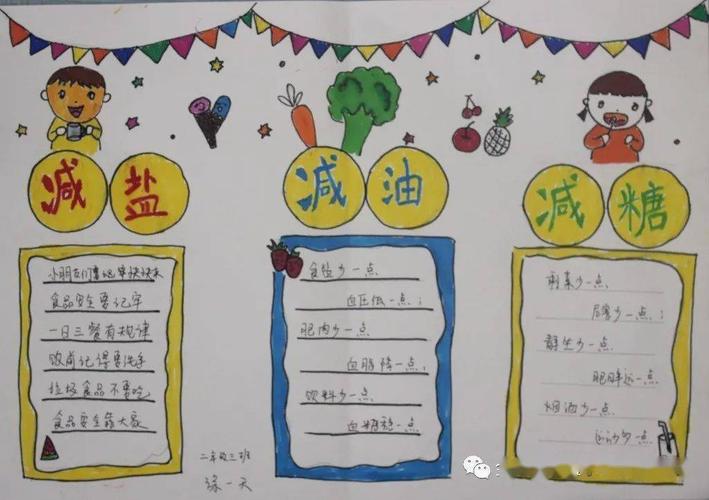 减盐
减油
减糖
小朋友们快快来
食品安全要记牢
一日三餐有规律
饭前记得要洗手
垃圾食品不要吃
食品安全靠大家
食盐少一点
血压低一点;
肥肉少一点
血脂降一点;
饮料少一点
血糖稳一点
剩菜少一点
少一点;
少一点
肥胖远一点
烟酒少一点
运动多一点
二年级三班
一天